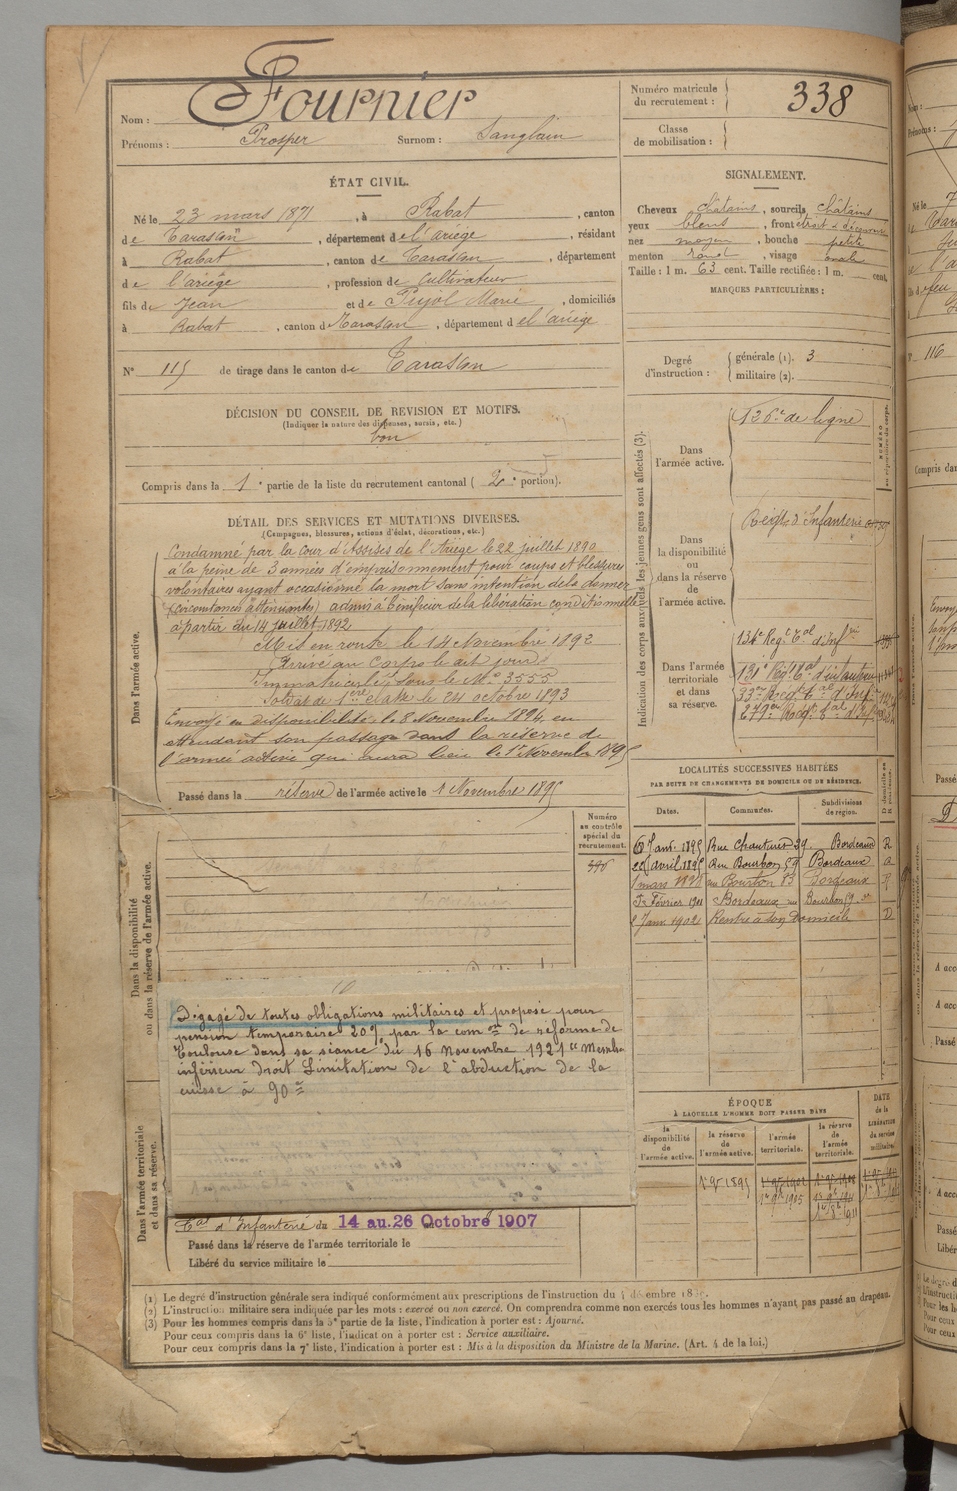 Nom : Fournier
Prénoms : Prosper Surnom : Sanglain
Numéro matricule du recrutement : 338
Classe de mobilisation :
ÉTAT CIVIL.
Né le 23 mars 1871, à Rabat, canton
de Tarascon, département de l'ariège, résidant
à Rabat, canton de Tarascon, département
de l'ariège, profession de Cultivateur
fils de Jean et de Pujol Marie, domiciliés
à Rabat, canton de Tarascon, département de l'ariège
N° 115 de tirage dans le canton de Tarascon
SIGNALEMENT.
Cheveux châtains, sourcils châtains
yeux bleus, front étroit & découvert
nez moyen, bouche petite
menton rond, visage ovale
Taille : 1 m. 63 cent. Taille rectifiée : 1 m. cent.
MARQUES PARTICULIÈRES :
Degré d'instruction : générale (1). 3
militaire (2).
DÉCISION DU CONSEIL DE REVISION ET MOTIFS.
(Indiquer la nature des dispenses, sursis, etc.)
bon
Compris dans la 1e partie de la liste du recrutement cantonal (2e portion).
DÉTAIL DES SERVICES ET MUTATIONS DIVERSES.
(Campagnes, blessures, actions d'éclat, décorations, etc.)
Dans l'armée active.
Condamné par la cour d'Assises de l'Ariège le 22 juillet 1890
à la peine de 3 années d'emprisonnement pour coups et blessures
volontaires ayant occasionné la mort sans intention de la donner
(circonstances atténuantes) admis à bénéficier de la libération conditionnelle
à partir du 14 juillet 1892
Mis en route le 14 Novembre 1892
Arrivé au Corps le dit jour
Immatriculé sous le N° 3555
Soldat de 1ère classe le 24 octobre 1893
Envoyé en disponibilité le 8 Novembre 1894, en
attendant son passage dans la réserve de
l'armée active qui aura lieu le 1er Novembre 1895
Passé dans la réserve de l'armée active le 1 Novembre 1895
Indication des corps auxquels les jeunes gens sont affectés (3).
NUMÉRO au répertoire du corps.
Dans l'armée active.
126e de ligne
Dans la disponibilité ou dans la réserve de l'armée active.
Régt d'Infanterie
Dans l'armée territoriale et dans sa réserve.
134e Régt Tal d'Infie
131e Régt Tal d'infanterie
33e Régt Tal d'Inf.
279e Régt Tal d'Inf.
LOCALITÉS SUCCESSIVES HABITÉES
PAR SUITE DE CHANGEMENTS DE DOMICILE OU DE RÉSIDENCE.
Dates. Communes. Subdivisions de région. D domicile ou R résidence.
Janv. 1895 Rue 39. Bordeaux R
avril 1895 Rue Bourbon 59 Bordeaux
1 mars Bourbon 83 Bordeaux R
Février 1901 Bordeaux rue Bourbon 59
2 Janv. 1902 Rentré à son Domicile D
Dans la disponibilité ou dans la réserve de l'armée active.
Numéro au contrôle spécial du recrutement.
Dégagé de toutes obligations militaires et proposé pour
pension temporaire 20% par la comon de réforme de
Toulouse dans sa séance du 16 novembre 1921 Membre
inférieur droit Limitation de l'abduction de la
cuisse à 90°
Dans l'armée territoriale et dans sa réserve.
Tal d'Infanterie du 14 au 26 Octobre 1907
Passé dans la réserve de l'armée territoriale le
Libéré du service militaire le
ÉPOQUE
À LAQUELLE L'HOMME DOIT PASSER DANS
la disponibilité de l'armée active. la réserve de l'armée active. l'armée territoriale. la réserve de l'armée territoriale. DATE de la LIBÉRATION du service militaire.
1er 9bre 1895
1er 9bre 1905
(1) Le degré d'instruction générale sera indiqué conformément aux prescriptions de l'instruction du 4 décembre
(2) L'instruction militaire sera indiquée par les mots : exercé ou non exercé. On comprendra comme non exercés tous les hommes n'ayant pas passé au drapeau.
(3) Pour les hommes compris dans la 5e partie de la liste, l'indication à porter est : Ajourné.
Pour ceux compris dans la 6e liste, l'indication à porter est : Service auxiliaire.
Pour ceux compris dans la 7e liste, l'indication à porter est : Mis à la disposition du Ministre de la Marine. (Art. 4 de la loi.)